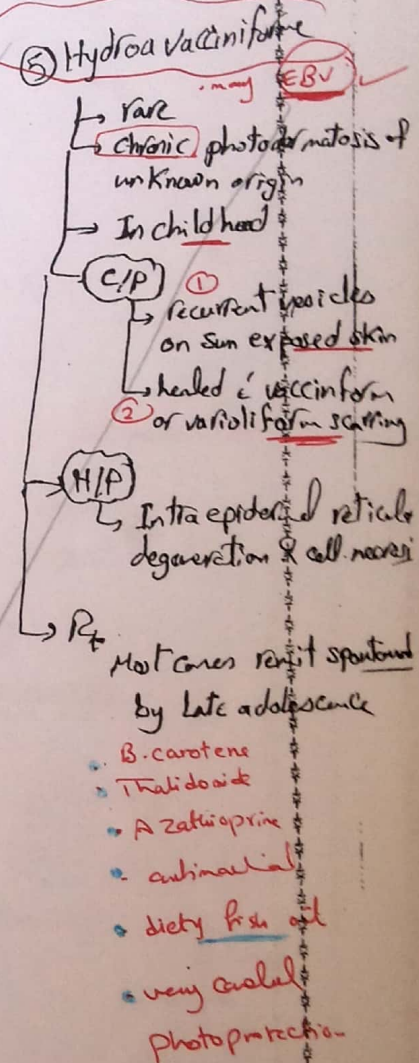 ⑤ Hydroa Vacciniforme
. may EBV
→ rare
→ chronic photodermatosis of
unknown origin
→ In childhood
C/P ①
→ recurrent vesicles
on sun exposed skin
→ healed c̄ vaccinform
② or varioliform scarring
H/P
→ Intra epidermal reticular
degeneration & cell necrosi
→ Rx
Most cases remit spontaneous
by late adolescence
• B. carotene
• Thalidomide
• Azathioprine
• antimalarial
• diety fish oil
• very careful
photoprotection